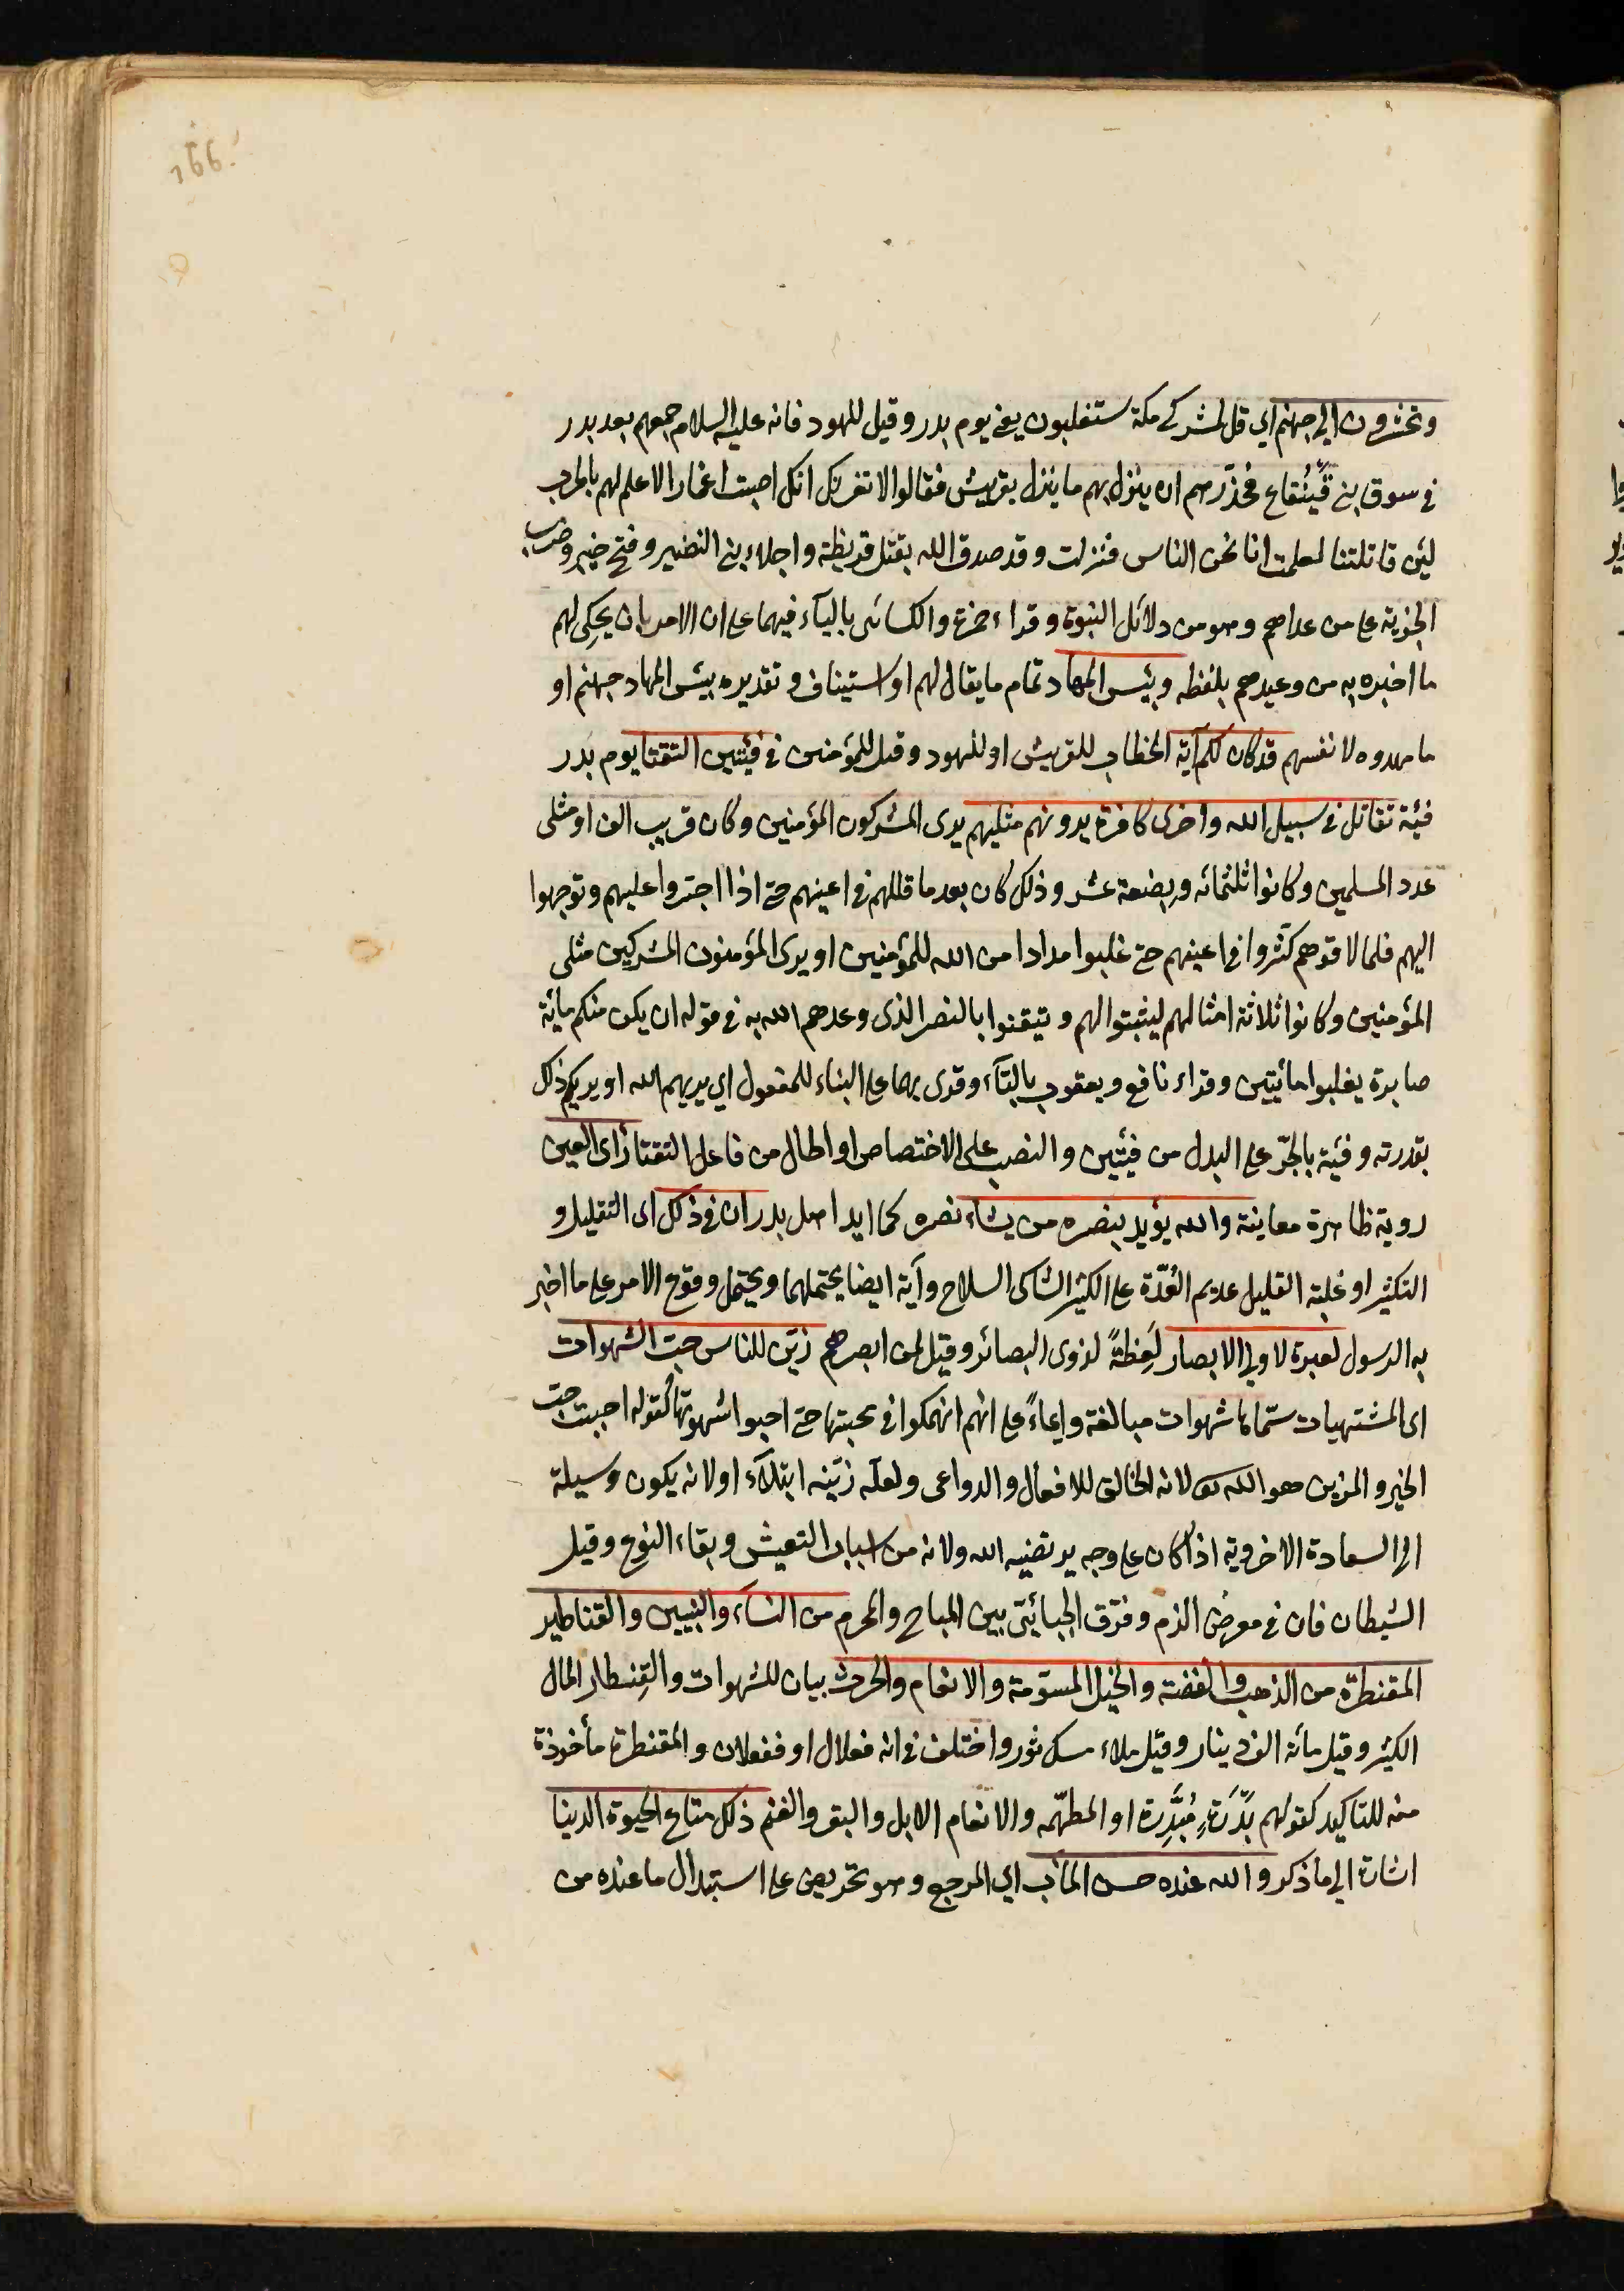 166.
وتحشرون الى جهنم اى قل لمشركى مكة ستغلبون يعنى يوم بدر وقيل لليهود فانه عليه السلام جمعهم بعد بدر
فى سوق بنى قَينُقاع فحذّرهم ان ينزل بهم ما ينزل بقريش فقالوا لا تغرنك انك اصبت اغمارا لا علم لهم بالحرب
لئن قاتلتنا لعلمت انا نحن الناس فنزلت وقد صدق الله بقتل قريظة واجلاء بنى النضير وفتح خيبر وضرب
الجزية على من عداهم وهو من دلائل النبوة وقراء حمزة والكسائى بالياء فيهما على ان الامر بان يحكى لهم
ما اخبره به من وعيدهم بلفظه وبئس المهاد تمام ما يقال لهم او استيناف وتقديره بيئس المهاد جهنم او
ما مهدوه لانفسهم قد كان لكم آية الخطاب للقريش او لليهود وقيل للمؤمنين فى فئتين التقتا يوم بدر
فئة تقاتل فى سبيل الله واخرى كافرة يرونهم مثليهم يرى المشركون المؤمنين وكان قريب الف او مثلى
عدد المسلمين وكانوا ثلثمائه وبضعة عشر وذلك كان بعد ما قللهم فى اعينهم حتى اذا اجتروا عليهم وتوجهوا
اليهم فلما لاقوهم كثروا فى اعينهم حتى غلبوا مدادا من الله للمؤمنين او يرى المؤمنون المشركين مثلى
المؤمنين وكانوا ثلاثة امثالهم ليثبتوا لهم ويتيقنوا بالنصر الذى وعدهم الله به فى قوله ان يكن منكم مائة
صابرة يغلبوا مائيتين وقراء نافع ويعقوب بالتاء وقرى بهما على البناء للمفعول اى يريهم الله او يريكم ذلك
بقدرته وفئة بالجرّ على البدل من فئتين والنصب على الاختصاص او الحال من فاعل التقتا رأى العين
روية ظاهرة معاينة والله يؤيد بنصره من يشاء نصره كما ايد اهل بدر ان فى ذلك اى التقليل و
التكثير او غلبة القليل عديم العُدّة على الكثير الشاكى السلاح وآية ايضا يحتملهما ويحتمل وقوع الامر على ما اخبر
به الرسول لعبرة لاولى الابصار لَعِظةً لذوى البصائر وقيل لمن ابصرهم زيّن للناس حب الشهوات
اى المشتهيات سمّاها شهوات مبالغة وايماءً على انهم انهمكوا فى محبتها حتى احبوا شهوتها كقوله احببت حب
الخير والمزين هو الله تعالى لانه الخالق للافعال والدواعى ولعلّه زيّنه ابتلآء او لانه يكون وسيلة
الى السعادة الاخروية اذا كان على وجه يرتضيه الله ولانه من اسباب التعيش وبقاء النوع وقيل
الشيطان فان فى معرض الذم وفرّق الجبائيّ بين المباح والمحرم من النساء والبنين والقناطير
المقنطرة من الذهب والفضة والخيل المسوّمة والانعام والحرث بيان للشهوات والقِنطار المال
الكثير وقيل مائة الف دينار وقيل ملاء مسك ثور واختلف فى انه فعلال او فنعلان والمقنطرة مأخوذة
منه للتاكيد كقولهم بدّرَة مُبَدَّرة او المطهّمه والانعام الابل والبقر والغنم ذلك متاع الحيوة الدنيا
اشارة الى ما ذكر والله عنده حسن المآب اى المرجع وهو تحريض على استبدال ما عنده من